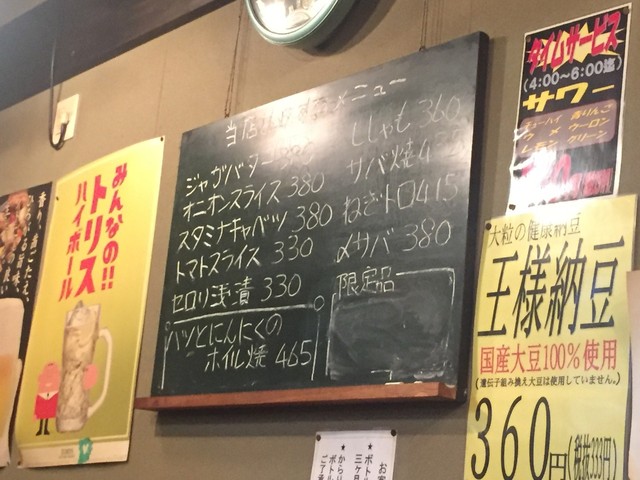 当店おすすめメニュー
ジャガバター
オニオンスライス 380
スタミナキャベツ 380
トマトスライス 330
セロリ浅漬 330
ハツとにんにくの
ホイル焼 465
ししゃも 360
サバ焼
ねぎトロ 415
〆サバ 380
限定品
みんなの!!
トリス
ハイボール
タイムサービス
(4:00〜6:00迄)
サワー
青りんご
ウメ ウーロン
レモン グリーン
大粒の健康納豆
王様納豆
国産大豆100%使用
(遺伝子組み換え大豆は使用していません。)
360円(税抜333円)
★ボトル
三ヶ月
★から
ボトル
ご了承